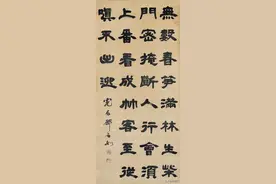 無數春筍滿林生柴
門密掩斷人行會須
上番看成竹客至從
嗔不出迎
完白鄧石如